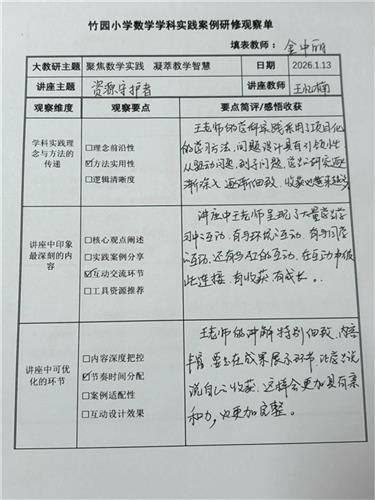 竹园小学数学学科实践案例研修观察单
填表教师：金中丽
大教研主题 聚焦数学实践 凝萃教学智慧 日期 2026.1.13
讲座主题 资源守护者 讲座教师 王
观察维度 观察要点 要点简评/感悟收获
学科实践理
念与方法的
传递
□理念前沿性
☑方法实用性
□逻辑清晰度
王老师的学科实践采用了项目化
的学习方法，问题设计具有引领性
从驱动问题，到子问题，学生研究逐
渐深入 逐渐细致，收获也越来越多
讲座中印象
最深刻的内
容
□核心观点阐述
□实践案例分享
☑互动交流环节
□工具资源推荐
讲座中王老师呈现了大量学生学
习中的互动，有与环境的互动，有与同学
的互动，还有与AI的互动，在互动中彼
此连接，有收获，有成长。
讲座中可优
化的环节
□内容深度把控
☑节奏时间分配
□案例适配性
□互动设计效果
王老师的讲解特别细致，内容
丰富，要是在成果展示环节，让学生说
说自己的收获，这样会更加具有亲
和力，也更加完整。